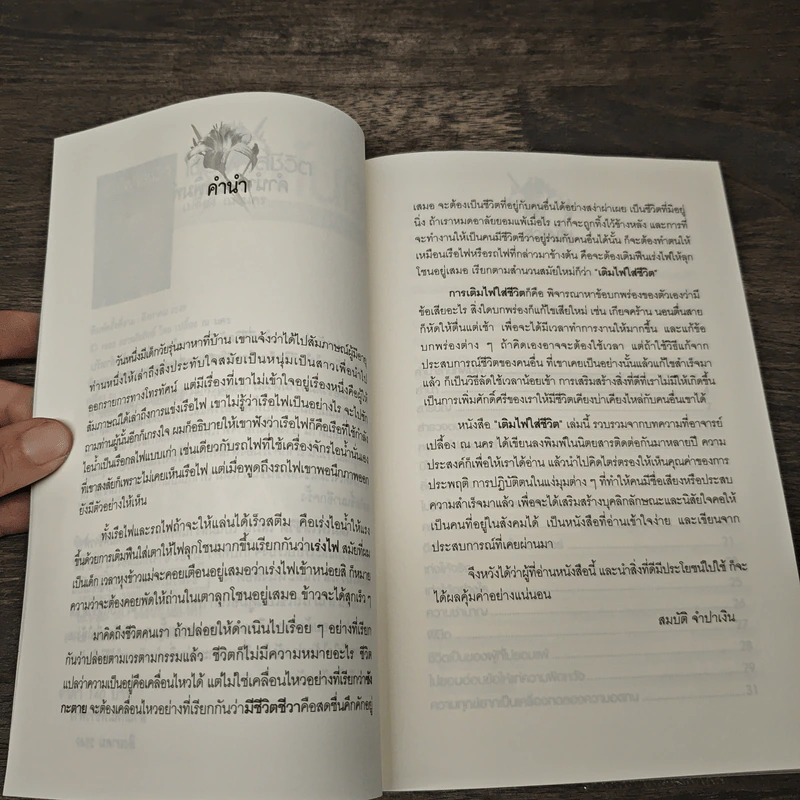 คำนำ
วันหนึ่งมีเด็กวัยรุ่นมาหาที่บ้าน เขาแจ้งว่าได้ไปสัมภาษณ์ผู้มีอายุ
ท่านหนึ่งให้เล่าถึงสิ่งประทับใจสมัยเป็นหนุ่มเป็นสาวเพื่อนำไป
ออกรายการทางโทรทัศน์ แต่มีเรื่องที่เขาไม่เข้าใจอยู่เรื่องหนึ่งคือผู้ให้
สัมภาษณ์ได้เล่าถึงการแข่งเรือไฟ เขาไม่รู้ว่าเรือไฟเป็นอย่างไร จะไปซัก
ถามท่านผู้นั้นอีกก็เกรงใจ ผมก็อธิบายให้เขาฟังว่าเรือไฟก็คือเรือที่ใช้กำลัง
ไอน้ำเป็นเรือกลไฟแบบเก่า เช่นเดียวกับรถไฟที่ใช้เครื่องจักรไอน้ำนั่นเอง
ที่เขาสงสัยก็เพราะไม่เคยเห็นเรือไฟ แต่เมื่อพูดถึงรถไฟเขาพอนึกภาพออก
ยังมีตัวอย่างให้เห็น
ทั้งเรือไฟและรถไฟถ้าจะให้แล่นได้เร็วสตีม คือเร่งไอน้ำให้แรง
ขึ้นด้วยการเติมฟืนใส่เตาให้ไฟลุกโชนมากขึ้นเรียกกันว่าเร่งไฟ สมัยที่ผม
เป็นเด็ก เวลาหุงข้าวแม่จะคอยเตือนอยู่เสมอว่าเร่งไฟเข้าหน่อยสิ ก็หมาย
ความว่าจะต้องคอยพัดให้ถ่านในเตาลุกโชนอยู่เสมอ ข้าวจะได้สุกเร็ว ๆ
มาคิดถึงชีวิตคนเรา ถ้าปล่อยให้ดำเนินไปเรื่อย ๆ อย่างที่เรียก
กันว่าปล่อยตามเวรตามกรรมแล้ว ชีวิตก็ไม่มีความหมายอะไร ชีวิต
แปลว่าความเป็นอยู่คือเคลื่อนไหวได้ แต่ไม่ใช่เคลื่อนไหวอย่างที่เรียกว่าซัง
กะตาย จะต้องเคลื่อนไหวอย่างที่เรียกกันว่ามีชีวิตชีวาคือสดชื่นคึกคักอยู่
เสมอ จะต้องเป็นชีวิตที่อยู่กับคนอื่นได้อย่างสง่าผ่าเผย เป็นชีวิตที่มีอยู่
นิ่ง ถ้าเราหมดอาลัยยอมแพ้เมื่อไร เราก็จะถูกทิ้งไว้ข้างหลัง และการที่
จะทำงานให้เป็นคนมีชีวิตชีวาอยู่ร่วมกับคนอื่นได้นั้น ก็จะต้องทำตนให้
เหมือนเรือไฟหรือรถไฟที่กล่าวมาข้างต้น คือจะต้องเติมฟืนเร่งไฟให้ลุก
โชนอยู่เสมอ เรียกตามสำนวนสมัยใหม่ก็ว่า "เติมไฟใส่ชีวิต"
การเติมไฟใส่ชีวิตก็คือ พิจารณาหาข้อบกพร่องของตัวเองว่ามี
ข้อเสียอะไร สิ่งใดบกพร่องก็แก้ไขเสียใหม่ เช่น เกียจคร้าน นอนตื่นสาย
ก็หัดให้ตื่นแต่เช้า เพื่อจะได้มีเวลาทำการงานให้มากขึ้น และแก้ข้อ
บกพร่องต่าง ๆ ถ้าคิดเองอาจจะต้องใช้เวลา แต่ถ้าใช้วิธีแก้จาก
ประสบการณ์ชีวิตของคนอื่น ที่เขาเคยเป็นอย่างนั้นแล้วแก้ไขสำเร็จมา
แล้ว ก็เป็นวิธีลัดใช้เวลาน้อยเข้า การเสริมสร้างสิ่งที่ดีที่เราไม่มีให้เกิดขึ้น
เป็นการเพิ่มศักดิ์ศรีของเราให้มีชีวิตเคียงบ่าเคียงไหล่กับคนอื่นเขาได้
หนังสือ "เติมไฟใส่ชีวิต" เล่มนี้ รวบรวมจากบทความที่อาจารย์
เปลื้อง ณ นคร ได้เขียนลงพิมพ์ในนิตยสารติดต่อกันมาหลายปี ความ
ประสงค์ก็เพื่อให้เราได้อ่าน แล้วนำไปคิดไตร่ตรองให้เห็นคุณค่าของการ
ประพฤติ การปฏิบัติตนในแง่มุมต่าง ๆ ที่ทำให้คนมีชื่อเสียงหรือประสบ
ความสำเร็จมาแล้ว เพื่อจะได้เสริมสร้างบุคลิกลักษณะและนิสัยใจคอให้
เป็นคนที่อยู่ในสังคมได้ เป็นหนังสือที่อ่านเข้าใจง่าย และเขียนจาก
ประสบการณ์ที่เคยผ่านมา
จึงหวังได้ว่าผู้ที่อ่านหนังสือนี้ และนำสิ่งที่ดีมีประโยชน์ไปใช้ ก็จะ
ได้ผลคุ้มค่าอย่างแน่นอน
สมบัติ จำปาเงิน